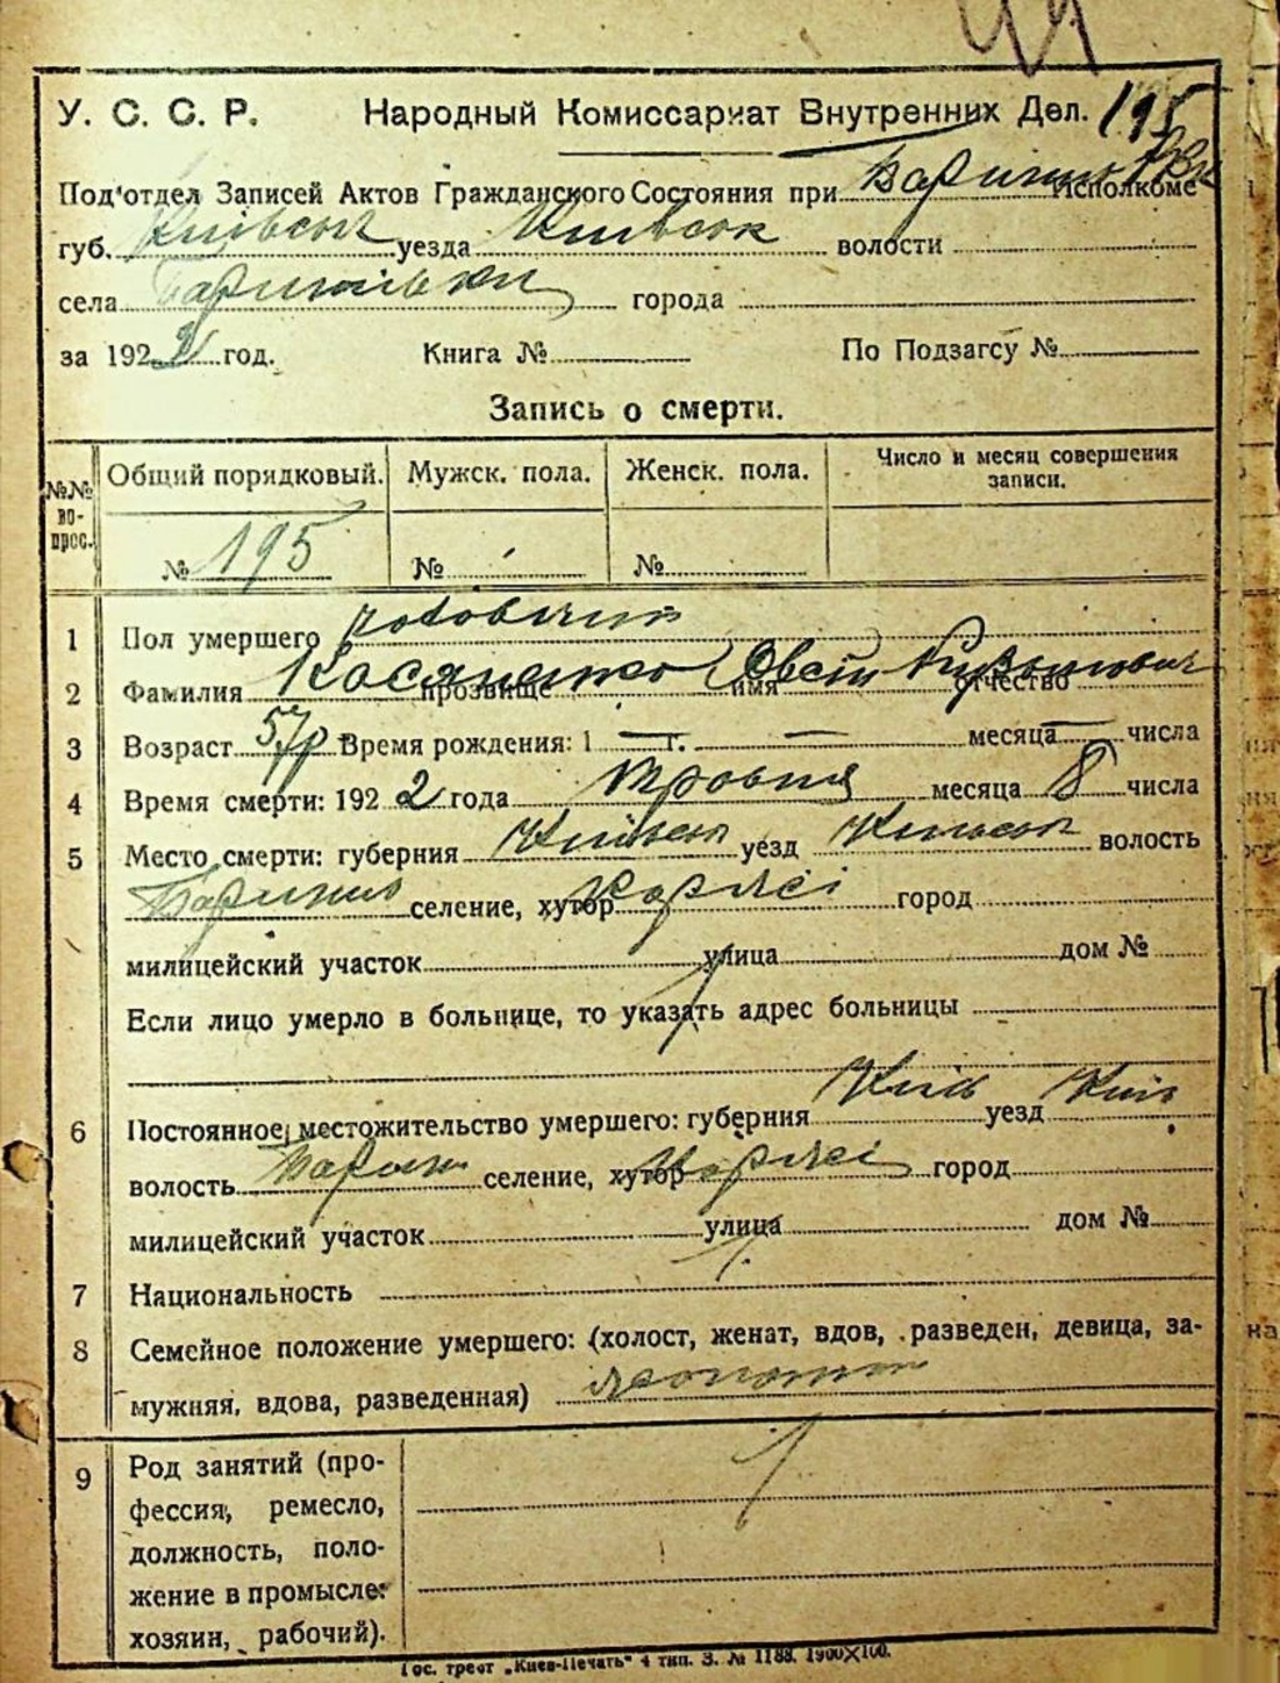 У. С. С. Р. Народный Комиссариат Внутренних Дел. 195
Под'отдел Записей Актов Гражданского Состояния при Исполкоме
губ. Київськ уезда Київськ волости
села Баришівки города
за 1922 год. Книга № По Подзагсу №
Запись о смерти.
№№ вопрос. Общий порядковый. Мужск. пола. Женск. пола. Число и месяц совершения записи.
№ 195 № №
1 Пол умершего чоловічий
2 Фамилия Касяненко прозвище имя Овсій отчество Кузьмович
3 Возраст 57р Время рождения: 1 — г. — месяца — числа
4 Время смерти: 192 2 года травня месяца 8 числа
5 Место смерти: губерния Київськ уезд Київськ волость
Баришів селение, хутор Коржсі город
милицейский участок улица дом №
Если лицо умерло в больнице, то указать адрес больницы
6 Постоянное местожительство умершего: губерния Київ уезд Київ
волость Бариш селение, хутор Коржсі город
милицейский участок улица дом №
7 Национальность
8 Семейное положение умершего: (холост, женат, вдов, разведен, девица, за-
мужняя, вдова, разведенная)
9 Род занятий (про-
фессия, ремесло,
должность, поло-
жение в промысле:
хозяин, рабочий).
Гос. трест „Киев-Печать" 4 тип. З. № 1188. 1900×100.